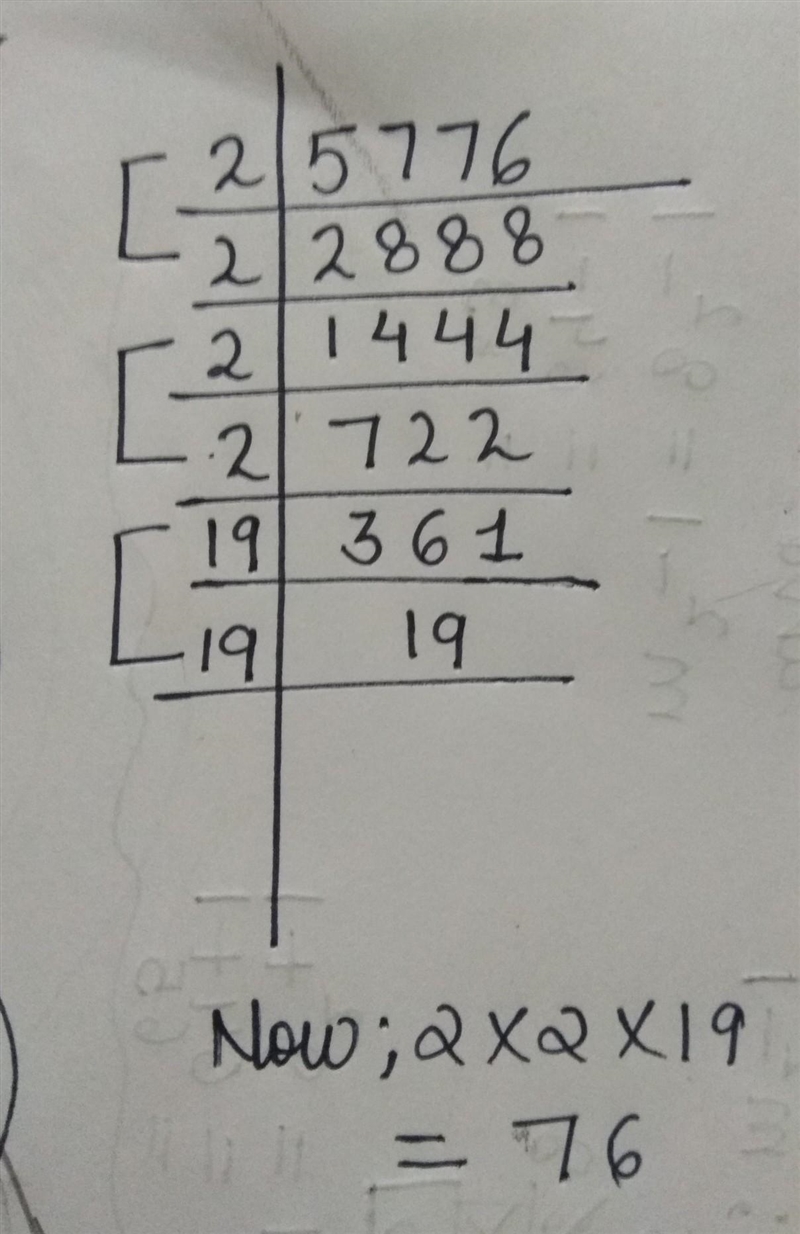 2 | 5776
2 | 2888
2 | 1444
2 | 722
19 | 361
19 | 19
Now; 2×2×19
= 76